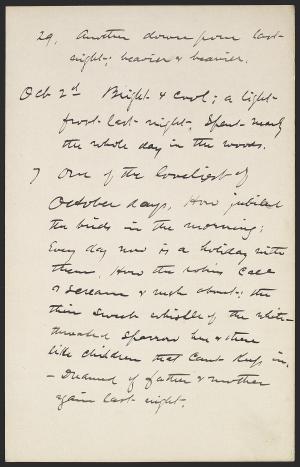 29. Another down pour last
night; heavier & heavier.
Oct 2d Bright & cool; a light
frost last night. Spent nearly
the whole day in the woods.
7 One of the loveliest of
October days. How jubilant
the birds in the morning;
Every day now is a holiday with
them. How the robins call
& scream & rush about; the
thin sweet whistle of the white-
throated sparrow here & there
like children that cant keep in.
- Dreamed of father & mother
again last night.